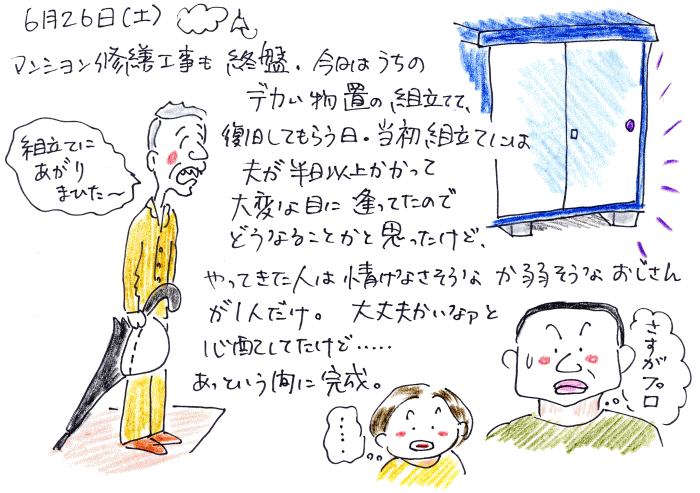 6月26日(土)
マンション修繕工事も終盤。今日はうちの
デカい物置の組立てを、
復旧してもらう日。当初組立てには
夫が半日以上かかって
大変な目に逢ってたので
どうなることかと思ったけど、
やってきた人は情けなさそうなか弱そうなおじさん
が1人だけ。大丈夫かいなァと
心配してたけど……
あっという間に完成。
組立てに
あがり
まひた〜
さすがプロ
……